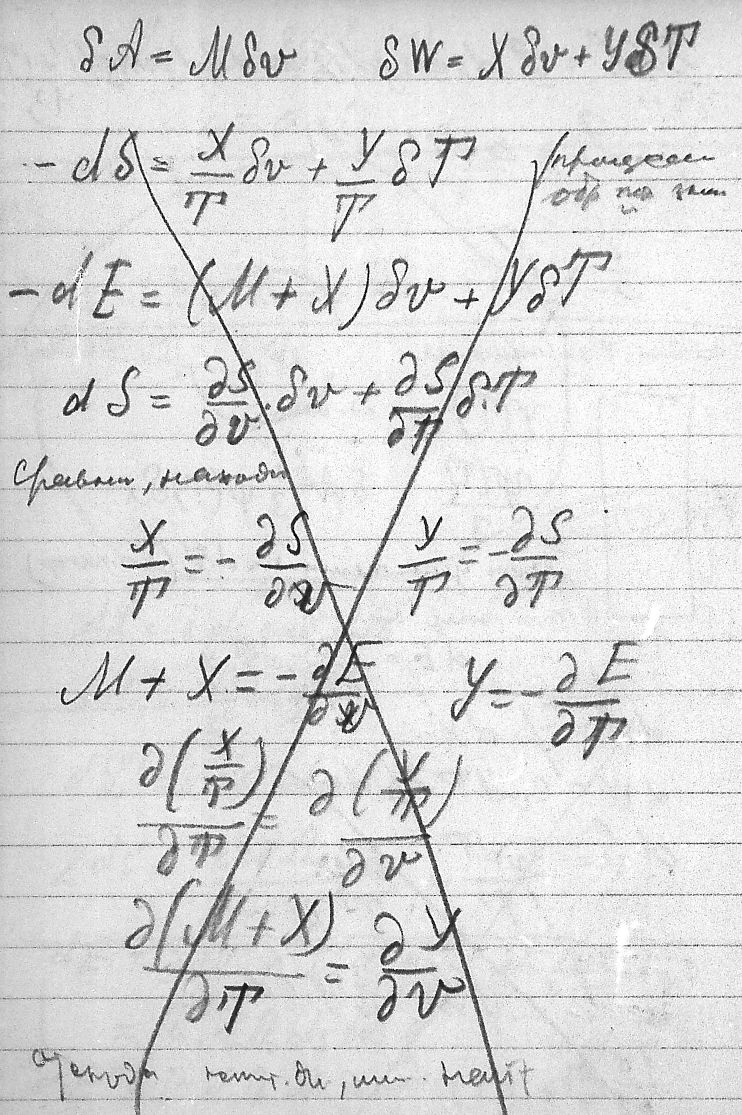 δA = Mδv δW = Xδv + YδT
- dS = X/T δv + Y/T δT
- dE = (M + X)δv + YδT
dS = ∂S/∂v · δv + ∂S/∂T δT
Сравни, находи
X/T = - ∂S/∂v Y/T = - ∂S/∂T
M + X = - ∂E/∂v Y = - ∂E/∂T
∂(X/T)/∂T = ∂(Y/T)/∂v
∂(M + X)/∂T = ∂Y/∂v